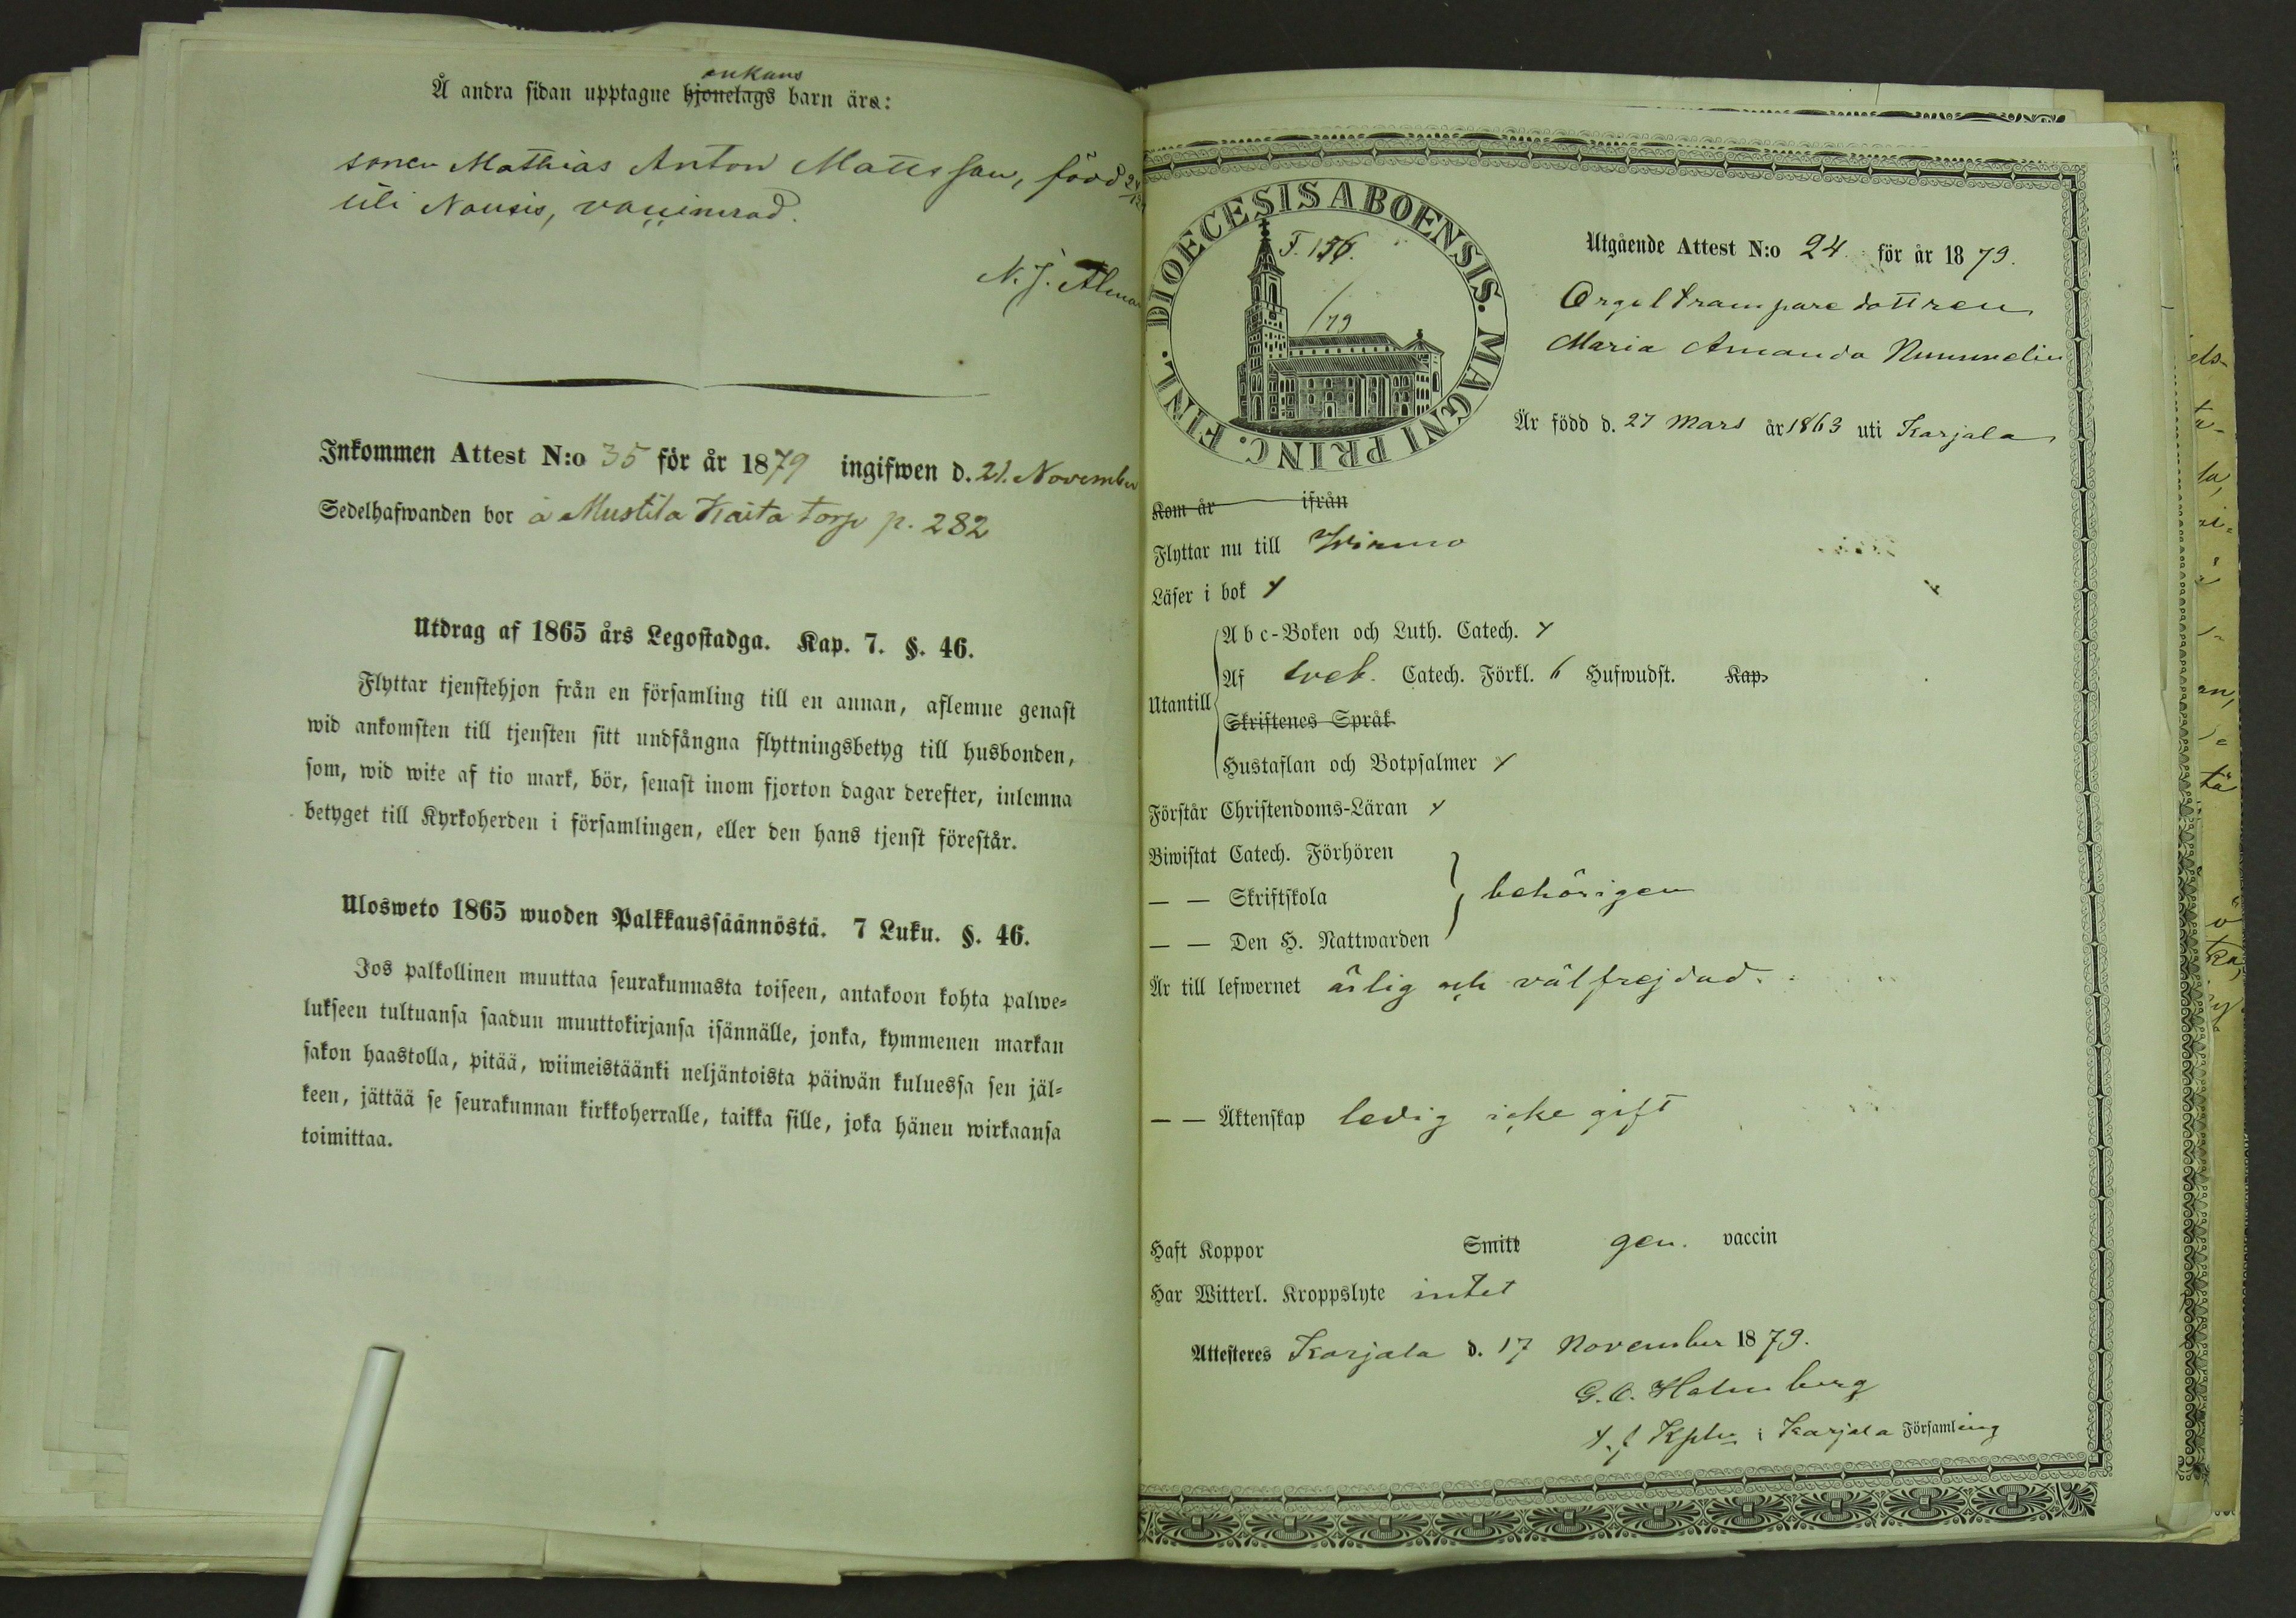 Å andra sidan upptagne hjonelags enkans barn är:
sonen Mathias Anton Mattsson, född 24
uti Nousis, vaccinerad.
N. J.
Inkommen Attest N:o 35 för år 1879 ingifwen d. 21. November
Sedelhafwanden bor å Mustila Kaita torp p. 282
Utdrag af 1865 års Legostadga. Kap. 7. §. 46.
Flyttar tjenstehjon från en församling till en annan, aflemne genast
wid ankomsten till tjensten sitt undfångna flyttningsbetyg till husbonden,
som, wid wite af tio mark, bör, senast inom fjorton dagar derefter, inlemna
betyget till Kyrkoherden i församlingen, eller den hans tjenst förestår.
Ulosweto 1865 wuoden Palkkaussäännöstä. 7 Luku. §. 46.
Jos palkollinen muuttaa seurakunnasta toiseen, antakoon kohta palwe-
lukseen tultuansa saadun muuttokirjansa isännälle, jonka, kymmenen markan
sakon haastolla, pitää, wiimeistäänki neljäntoista päiwän kuluessa sen jäl-
keen, jättää se seurakunnan kirkkoherralle, taikka sille, joka hänen wirkaansa
toimittaa.
DIOECESIS ABOENSIS. MAGNI PRINC. FINL.
F. 156.
/79
Utgående Attest N:o 24 för år 1879.
Orgeltrampare dottren
Maria Amanda Nummelin
Är född d. 27 Mars år 1863 uti Karjala
Kom år ifrån
Flyttar nu till Wirmo
Läser i bok
Abc-Boken och Luth. Catech.
Af sveb. Catech. Förkl. 6 Hufwudst. Kap.
Utantill
Skriftenes Språk
Hustaflan och Botpsalmer
Förstår Christendoms-Läran
Biwistat Catech. Förhören
— — Skriftskola behörigen
— — Den H. Nattwarden
Är till lefwernet ärlig och välfrejdad.
— — Äktenskap ledig icke gift
Haft Koppor Smitt gen. vaccin
Har Witterl. Kroppslyte intet
Attesteres Karjala d. 17 November 1879.
G. O. Holmberg
i Karjala Församling